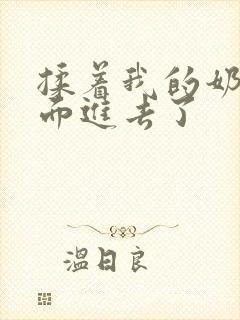 揉着我的奶
而进去了
温日良